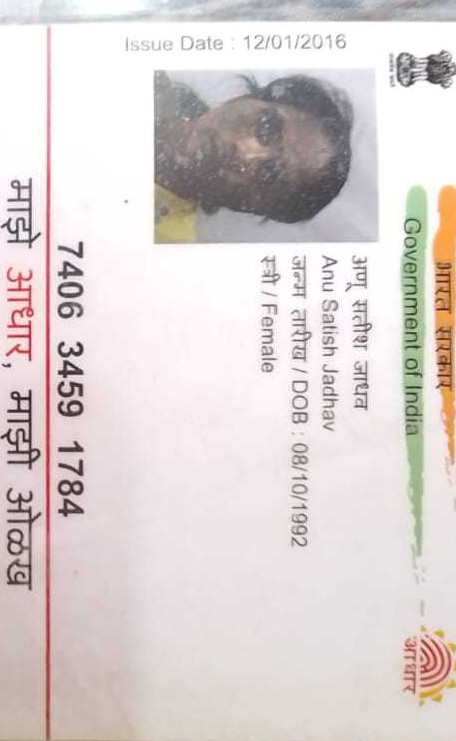 भारत सरकार
Government of India
Issue Date : 12/01/2016
अणू सतीश जाधव
Anu Satish Jadhav
जन्म तारीख / DOB : 08/10/1992
स्त्री / Female
7406 3459 1784
माझे आधार, माझी ओळख
आधार